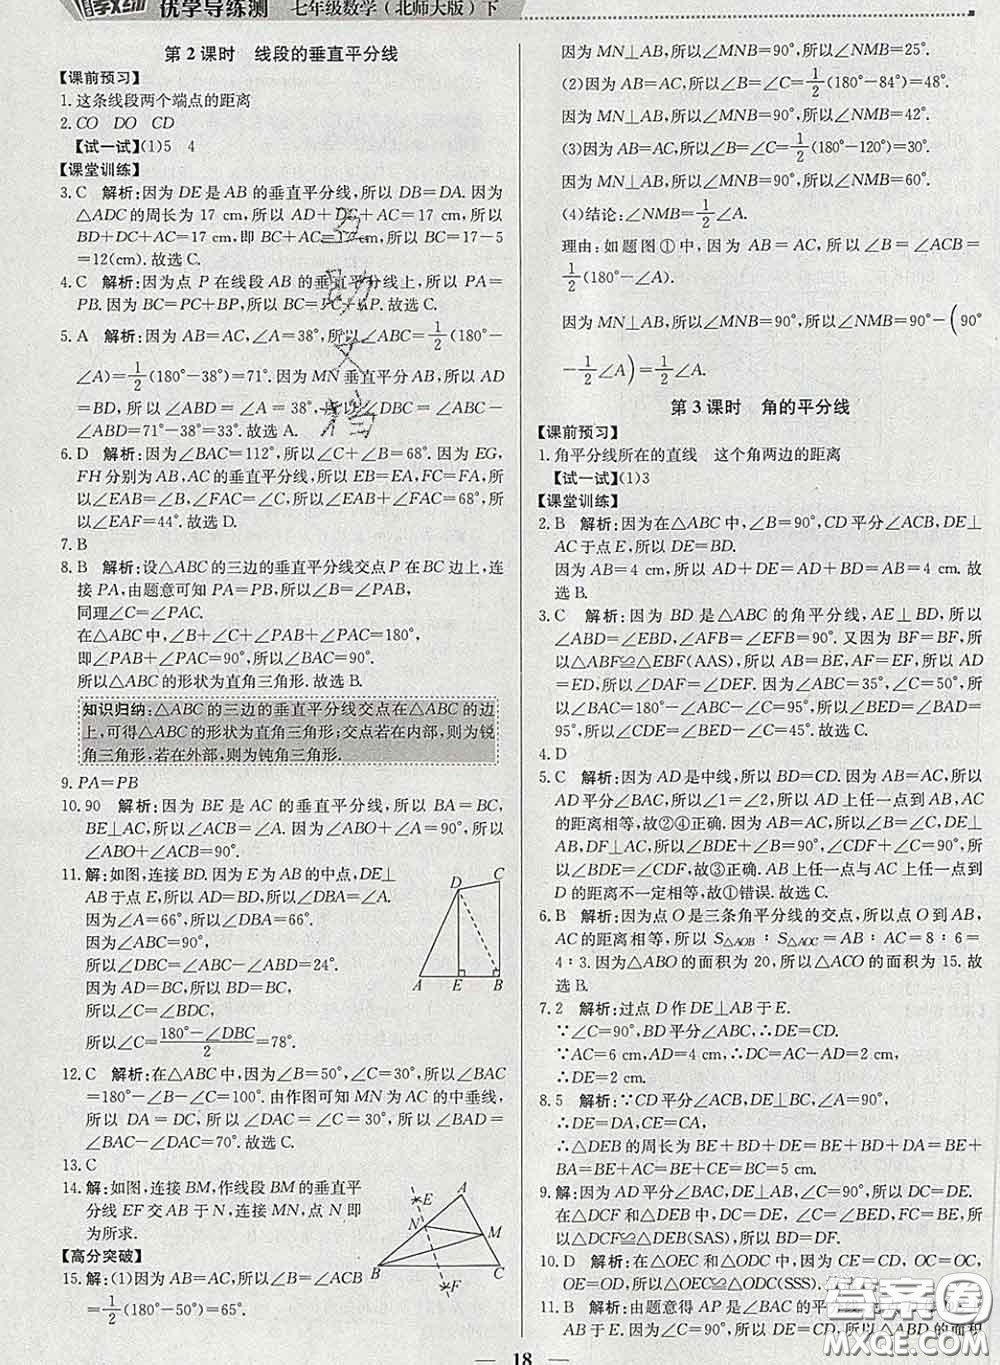 优学导练测 七年级数学（北师大版）下
第2课时 线段的垂直平分线
【课前预习】
1.这条线段两个端点的距离
2.CO DO CD
【试一试】(1)5 4
【课堂训练】
3.C 解析:因为DE是AB的垂直平分线,所以DB=DA.因为
△ADC的周长为17 cm,所以AD+DC+AC=17 cm,所以
BD+DC+AC=17 cm,即BC+AC=17 cm,所以BC=17-5
=12(cm).故选C.
4.C 解析:因为点P在线段AB的垂直平分线上,所以PA=
PB.因为BC=PC+BP,所以BC=PC+AP.故选C.
5.A 解析:因为AB=AC,∠A=38°,所以∠ABC=1/2(180°-
∠A)=1/2(180°-38°)=71°.因为MN垂直平分AB,所以AD
=BD,所以∠ABD=∠A=38°,所以∠DBC=∠ABC-
∠ABD=71°-38°=33°.故选A.
6.D 解析:因为∠BAC=112°,所以∠B+∠C=68°.因为EG,
FH分别为AB,AC的垂直平分线,所以EB=EA,FC=FA,所
以∠EAB=∠B,∠FAC=∠C,所以∠EAB+∠FAC=68°,所
以∠EAF=44°.故选D.
7.B
8.B 解析:设△ABC的三边的垂直平分线交点P在BC边上,连
接PA,由题意可知PA=PB,所以∠B=∠PAB,
同理∠C=∠PAC.
在△ABC中,∠B+∠C+∠PAB+∠PAC=180°,
即∠PAB+∠PAC=90°,所以∠BAC=90°.
所以△ABC的形状为直角三角形.故选B.
知识归纳:△ABC的三边的垂直平分线交点在△ABC的边
上,可得△ABC的形状为直角三角形;交点若在内部,则为锐
角三角形,若在外部,则为钝角三角形.
9.PA=PB
10.90 解析:因为BE是AC的垂直平分线,所以BA=BC,
BE⊥AC,所以∠ACB=∠A.因为∠ABO+∠A=90°,所以
∠ABO+∠ACB=90°.
11.解:如图,连接BD.因为E为AB的中点,DE⊥
AB于点E,所以AD=BD,所以∠DBA=∠A.
因为∠A=66°,所以∠DBA=66°.
因为∠ABC=90°,
所以∠DBC=∠ABC-∠ABD=24°.
因为AD=BC,所以BD=BC,
所以∠C=∠BDC,
所以∠C=(180°-∠DBC)/2=78°.
D C A E B
12.C 解析:在△ABC中,因为∠B=50°,∠C=30°,所以∠BAC
=180°-∠B-∠C=100°.由作图可知MN为AC的中垂线,
所以DA=DC,所以∠DAC=∠C=30°,所以∠BAD=
∠BAC-∠DAC=70°.故选C.
13.C
14.解:如图,连接BM,作线段BM的垂直平
分线EF交AB于N,连接MN,点N即
为所求.
E A N M B C F
【高分突破】
15.解:(1)因为AB=AC,所以∠B=∠ACB
=1/2(180°-50°)=65°.
因为MN⊥AB,所以∠MNB=90°,所以∠NMB=25°.
(2)因为AB=AC,所以∠B=∠C=1/2(180°-84°)=48°.
因为MN⊥AB,所以∠MNB=90°,所以∠NMB=42°.
(3)因为AB=AC,所以∠B=∠C=1/2(180°-120°)=30°.
因为MN⊥AB,所以∠MNB=90°,所以∠NMB=60°.
(4)结论:∠NMB=1/2∠A.
理由:如题图①中,因为AB=AC,所以∠B=∠ACB=
1/2(180°-∠A).
因为MN⊥AB,所以∠MNB=90°,所以∠NMB=90°-(90°
-1/2∠A)=1/2∠A.
第3课时 角的平分线
【课前预习】
1.角平分线所在的直线 这个角两边的距离
【试一试】(1)3
【课堂训练】
2.B 解析:因为在△ABC中,∠B=90°,CD平分∠ACB,DE⊥
AC于点E,所以DE=BD.
因为AB=4 cm,所以AD+DE=AD+BD=AB=4 cm.故
选B.
3.C 解析:因为BD是△ABC的角平分线,AE⊥BD,所以
∠ABD=∠EBD,∠AFB=∠EFB=90°.又因为BF=BF,所
以△ABF≌△EBF(AAS),所以AB=BE,AF=EF,所以AD
=ED,所以∠DAF=∠DEF,所以∠BED=∠BAD=95°,所
以∠CDE=∠BED-∠C=95°-50°=45°.故选C.
4.D
5.C 解析:因为AD是中线,所以BD=CD.因为AB=AC,AD
是中线,所以∠1=∠2,所以AD上任一点到AB,AC
的距离相等,故②④正确.因为AB=AC,所以∠B=∠C,DE⊥
AB,DF⊥AC,所以∠BDE+∠B=90°,∠CDF+∠C=90°.所
以∠BDE=∠CDF,故③正确.AB上任一点与AC上任一点到
D的距离不一定相等,故①错误.故选C.
6.B 解析:因为点O是三条角平分线的交点,所以点O到AB,
AC的距离相等,所以S△AOB:S△AOC=AB:AC=8:6=
4:3.因为△ABO的面积为20,所以△ACO的面积为15.故
选B.
7.2 解析:过点D作DE⊥AB于E.
∵∠C=90°,BD平分∠ABC,∴DE=CD.
∵AC=6 cm,AD=4 cm,∴CD=2 cm,
∴DE=2 cm.
8.5 解析:∵CD平分∠ACB,DE⊥AC,∠A=90°,
∴DE=DA,CE=CA,
∴△DEB的周长为BE+BD+DE=BE+BD+DA=BE+
BA=BE+AC=BE+CE=BC=5 cm.
9.解:因为AD平分∠BAC,DE⊥AB,∠C=90°,所以DC=DE.
在△DCF和△DEB中,DC=DE,∠C=∠BED,FC=BE,所
以△DCF≌△DEB(SAS),所以BD=DF.
10.D 解析:在△OEC和△ODC中,因为CE=CD,OC=OC,
OE=OD,所以△OEC≌△ODC(SSS).
11.B 解析:由题意得AP是∠BAC的平分线,
所以△ABD的面积
答案圈
MXQE.COM
18